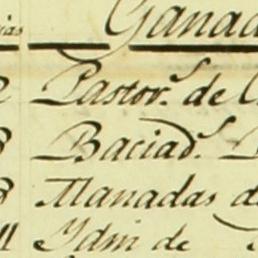 Ganad
Pastor.s de
Baciad.s
Manadas de
Ydm de